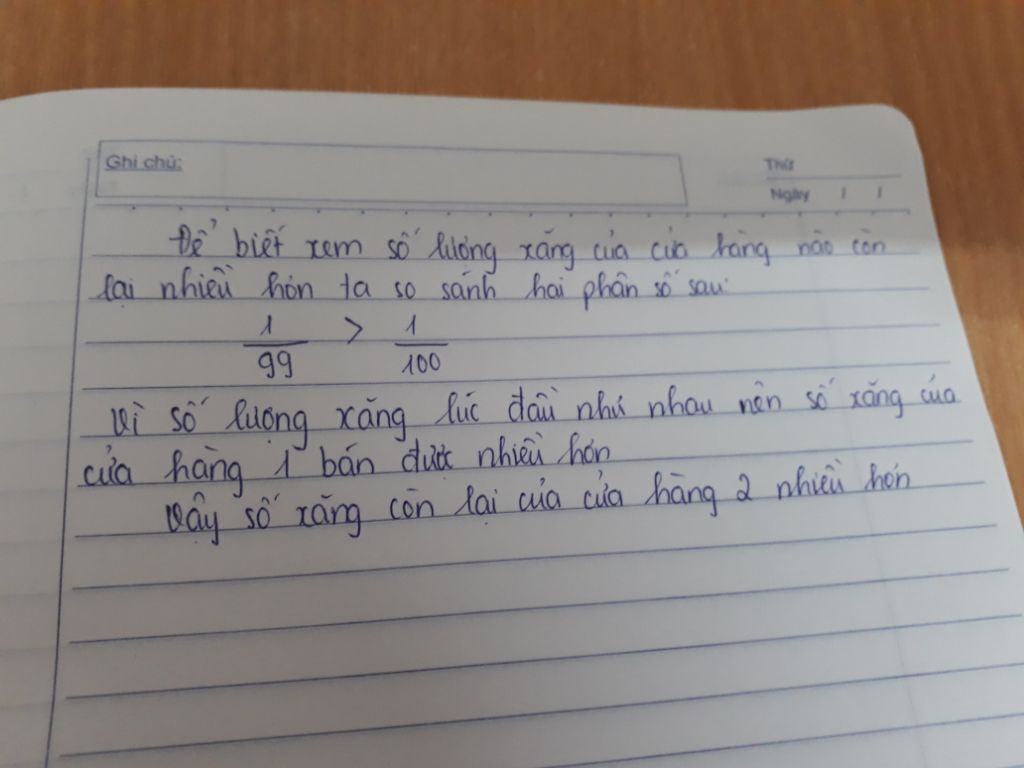 Ghi chú:
Thứ
Ngày / /
Để biết xem số lượng xăng của cửa hàng nào còn
lại nhiều hơn ta so sánh hai phân số sau:
1/99 > 1/100
Vì số lượng xăng lúc đầu như nhau nên số xăng của
cửa hàng 1 bán được nhiều hơn
Vậy số xăng còn lại của cửa hàng 2 nhiều hơn